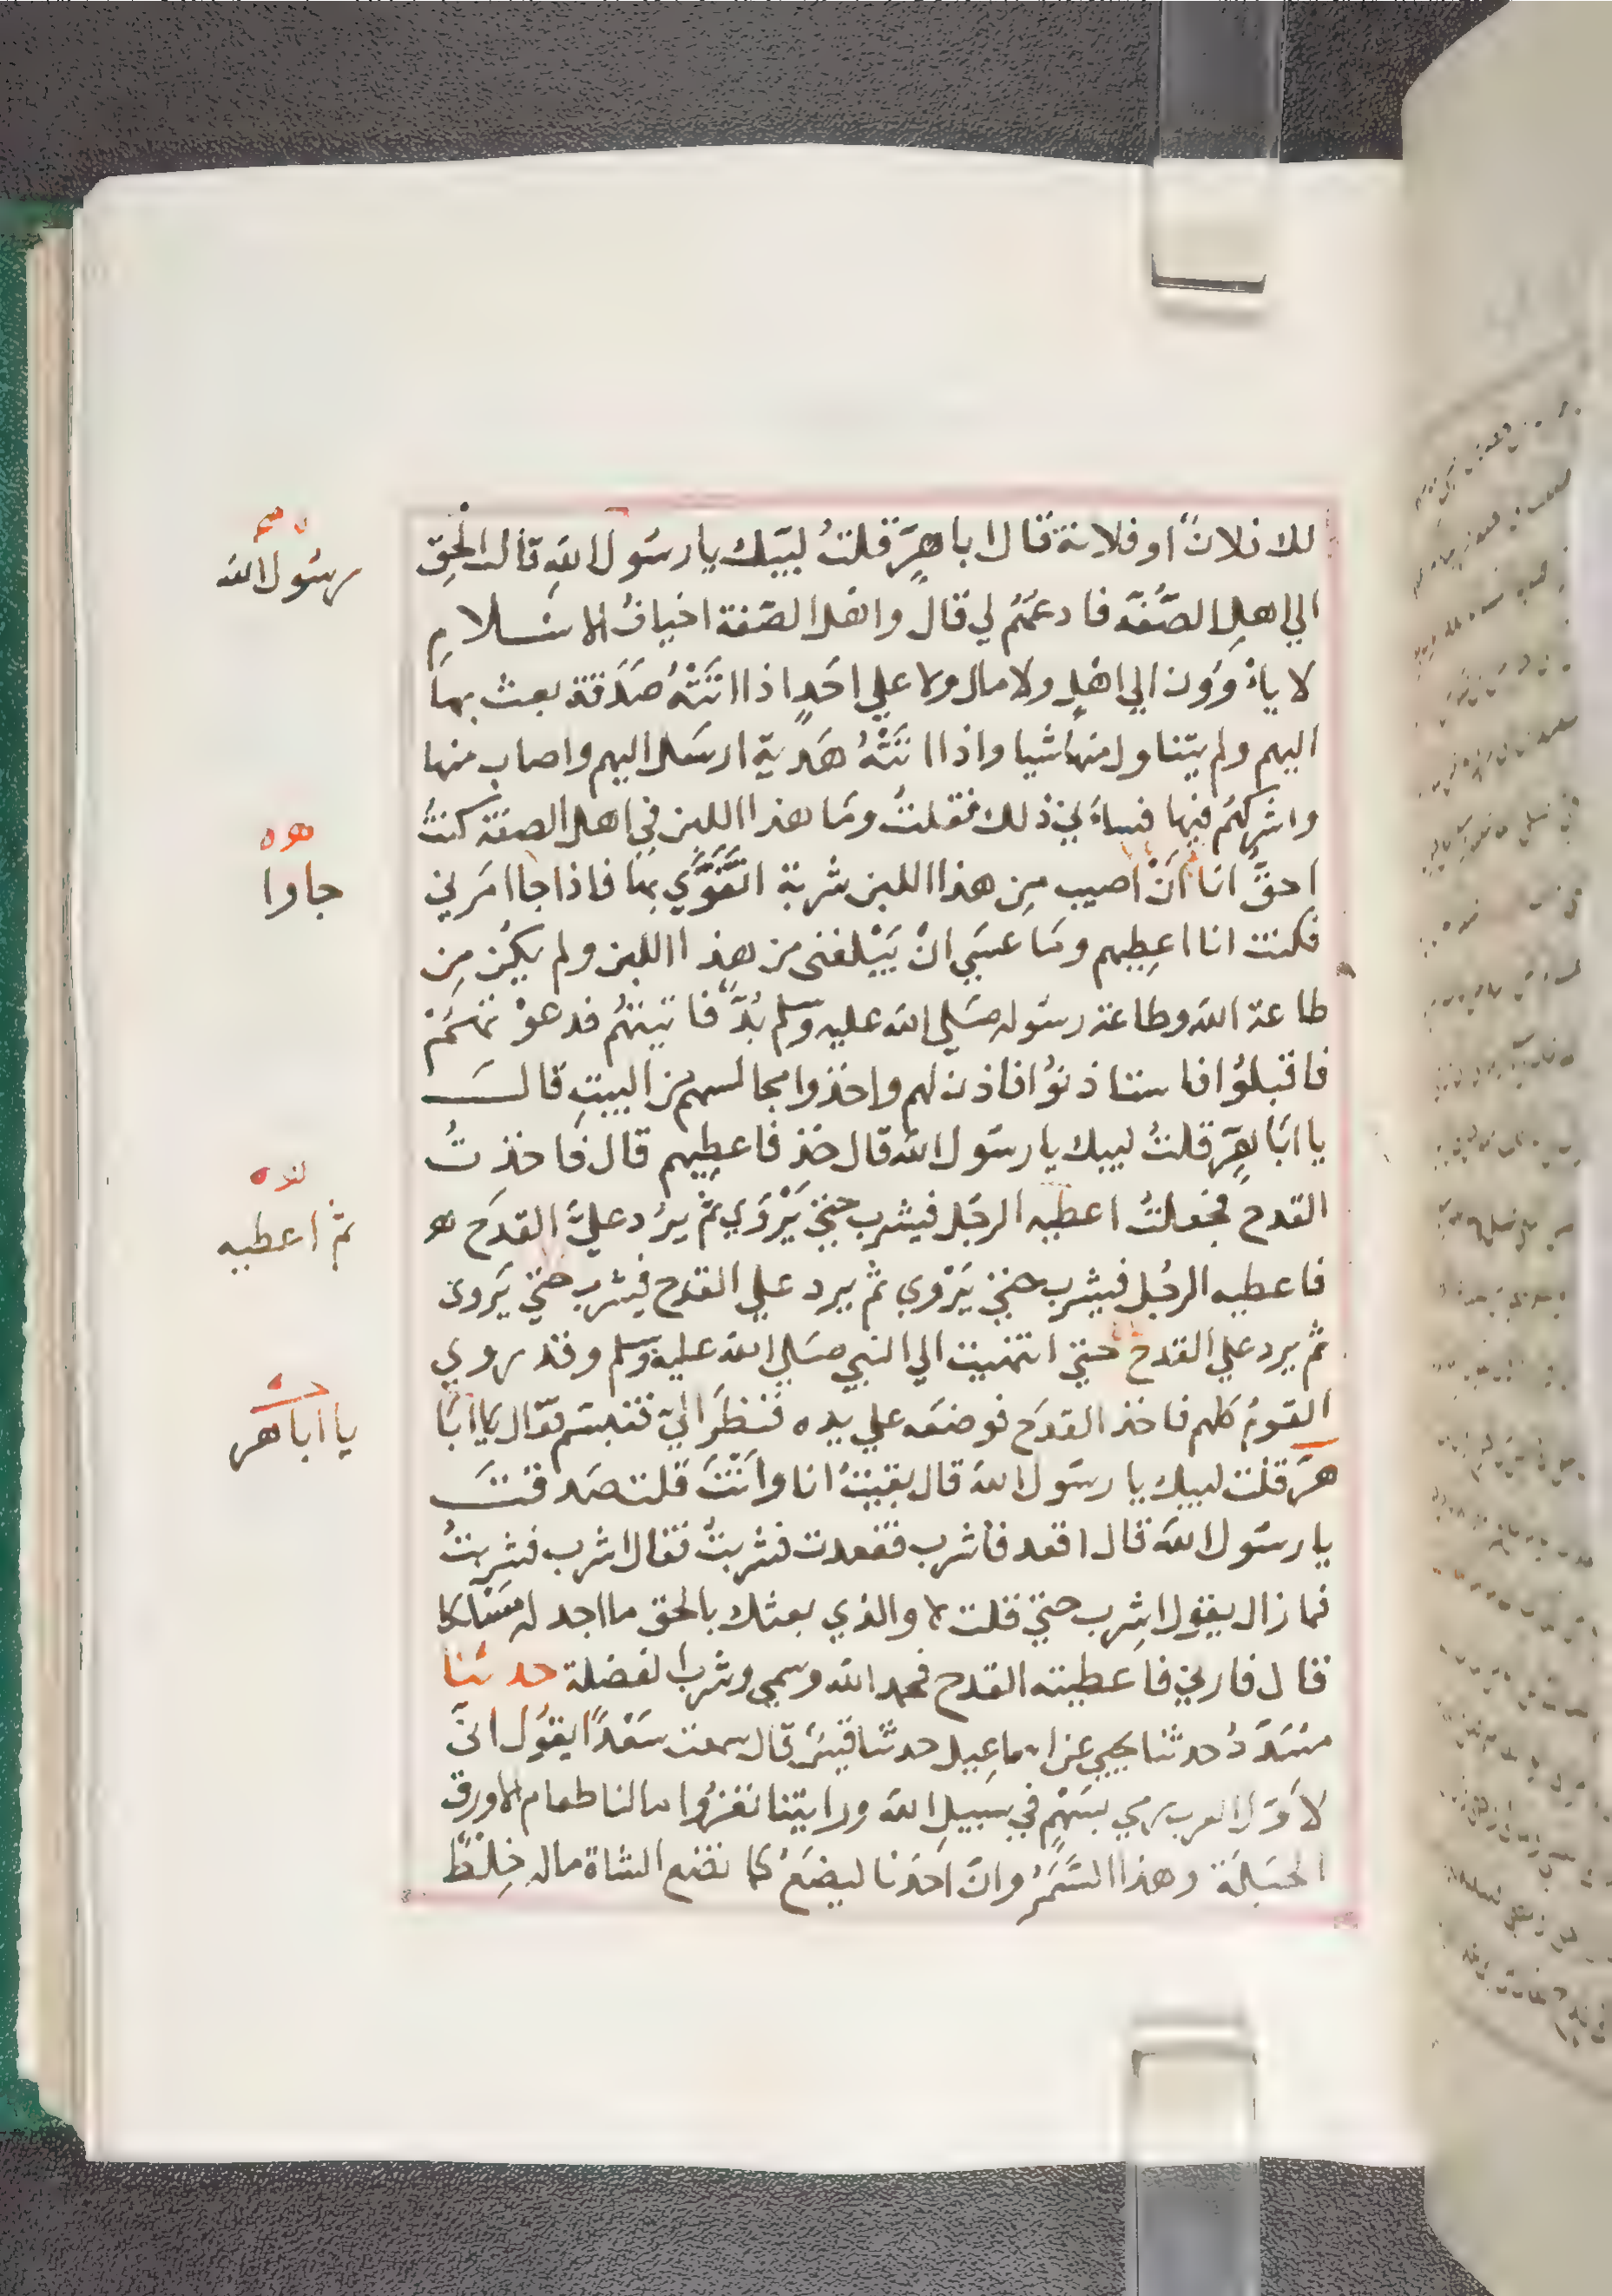 لك فلانٌ او فلانة قال اباهِرٍّ قلتُ لبيّك يا رسَول اللهِ قال الحقِ
الي اهلِ الصُّفّه فادعُهُم لي قال واهل الصّفة اضيافُ الاسلام
لا ياْوُون الي اهْلٍ ولا مال ولا علي احَدٍ اذا اتَتْهُ صَدَقة بعث بها
اليهم ولم يتناول منها شيا واذا اتَتْهُ هَديةٌ ارسَل اليهم واصاب منها
واشركهُم فيها فساءَني ذلك فقلتُ ومَا هذا اللبن في اهل الصفة كنتُ
احقَّ انا اَنْ اصيب مِن هذا اللبن شربة اتَقَوَّي بهَا فاذا جا امَرني
فكنت انا اعطِيهم ومَا عسَي انْ يَبْلغنى من هذا اللبن ولم يكُن مِن
طاعة الله وطاعة رسَوله صَلي الله عليه وسلم بُدٌّ فاتيتهُم فدعوْتهُمْ
فاقبلوُا فاستاذنوُا فاذن لهم واخذوا مجالسهم من البيتِ قال
يا ابَا هِرٍّ قلتُ لبيك يا رسَول الله قال خذ فاعطِيهم قال فَاخذتُ
القدح فجعلتُ اعطيه الرجُل فيشرب حتي يَرْوَي ثمَّ يرُد عليَّ القدَح
فاعطيه الرجُل فيشرب حتي يَرْوي ثم يرد علي القدح فيشرب حتي يَروى
ثم يرد علي القدح حتي انتهيت الي النبي صَلي الله عليه وسلم وقد روي
القومُ كلهم فاخذ القدَح فوضعَه علي يده فَنظرَ اليّ فتبسّم فقال يا ابَا
هرّ قلت لبيك يا رسَول الله قال بقيتُ انا وَانْتَ قلت صَدقتَ
يا رسَول الله قال اقعد فاشرب فقعدت فشربتُ فقال اشرب فشربتُ
فما زال يقول اشرب حتي قلت لا والذي بعثك بالحق ما اجد له مَسْلكا
قال فارني فاعطيته القدح فحمد الله وسمي وشرب الفضلة حدثنا
مُسَدّدُ حدثنا يحيي عن اسماعِيل حدثنا قيسٌ قال سمعت سَعْدًا يقوُل انّي
لاَوّل العرب رمي بسَهْمٍ في سبيلِ الله ورايتنا نغزُوا ما لنا طعام الا ورق
الحُبلَة وهذا السَّمُرُ وانّ احَدَنا ليضَعُ كما تضَع الشاة ماله خِلْطٌ
رسَول الله
جاوا
ثمّ اعطيه
يا اباهر